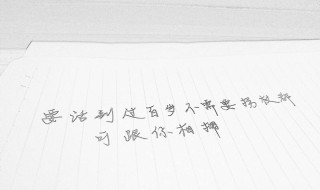 要活到过百岁不需要搀扶都
可跟你相拥